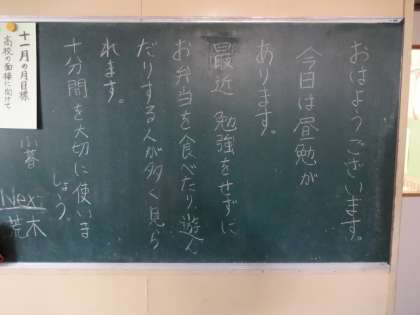 おはようございます。
今日は昼勉が
あります。
最近 勉強をせずに
お弁当を食べたり、遊ん
だりする人が多く見ら
れます。
十分間を大切に使いま
しょう。
小暮
Next
荒木
十一月の月目標
高校の面接に向けて